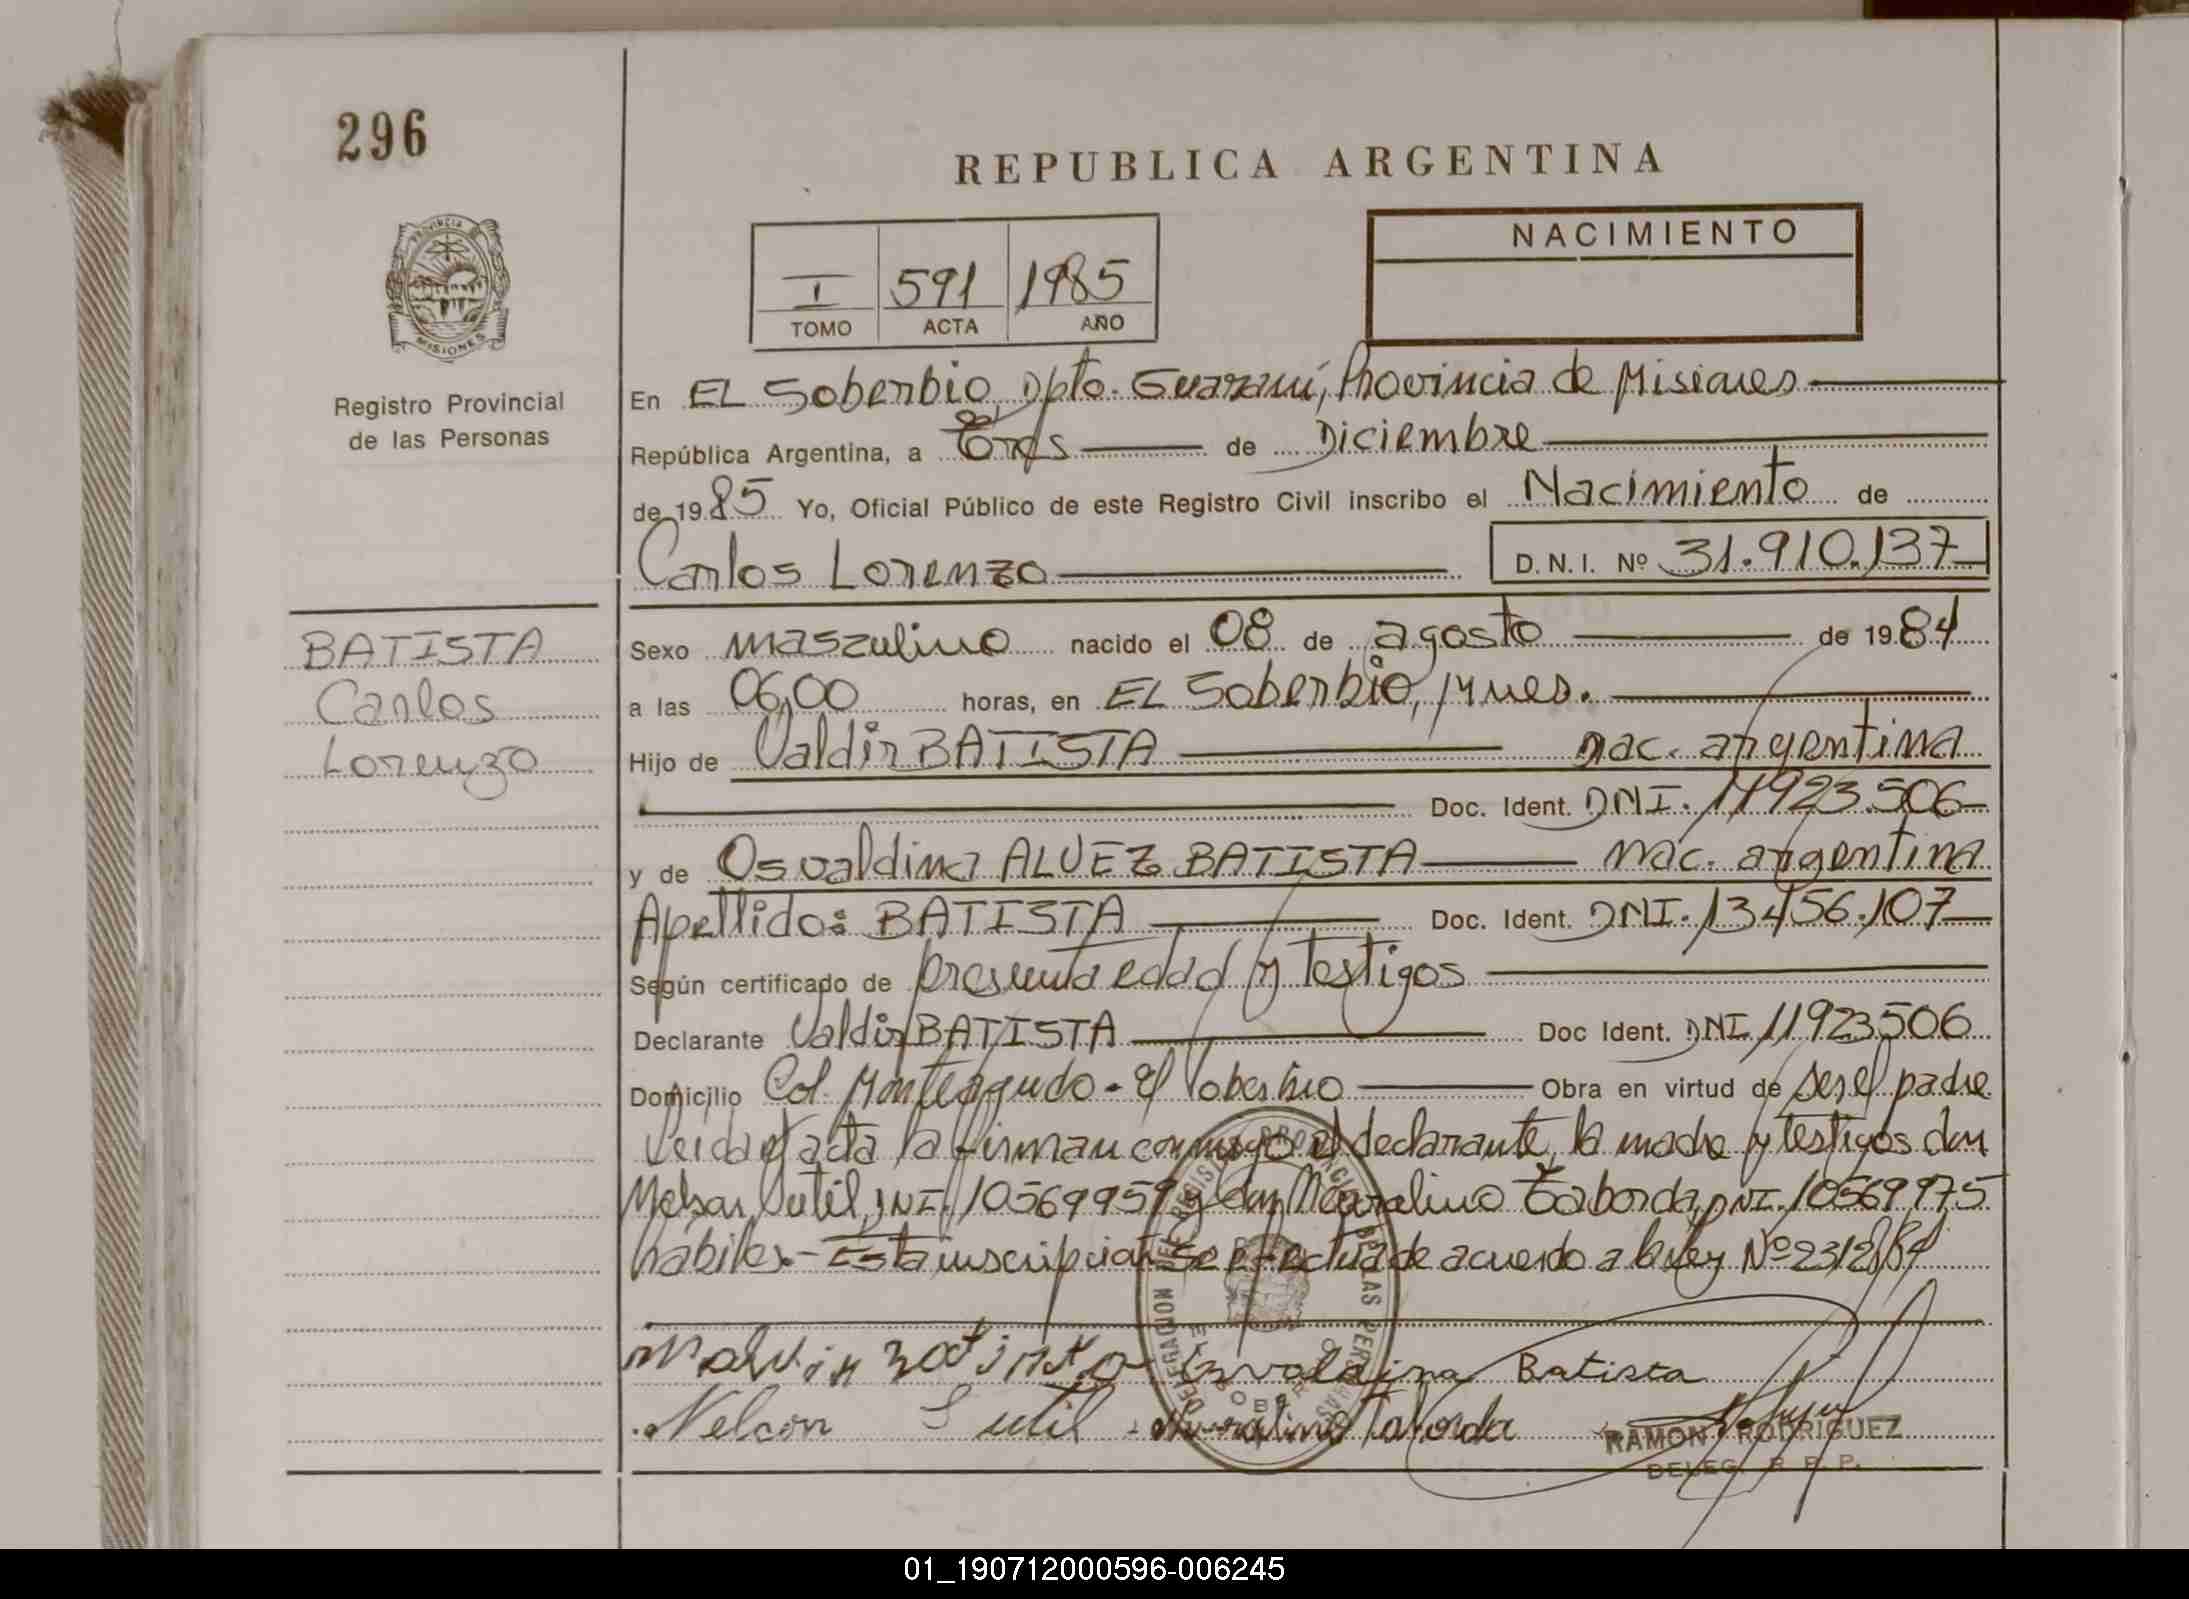 296
REPUBLICA ARGENTINA
PROVINCIA
MISIONES
Registro Provincial
de las Personas
I 591 1985
TOMO ACTA AÑO
NACIMIENTO
En EL Soberbio, Dpto. Guaraní, Provincia de Misiones
República Argentina, a Tres de Diciembre
de 1985 Yo, Oficial Público de este Registro Civil inscribo el Nacimiento de
Carlos Lorenzo D.N.I. Nº 31.910.137
BATISTA
Carlos
Lorenzo
Sexo masculino nacido el 08 de agosto de 1984
a las 06,00 horas, en EL Soberbio, Mnes.
Hijo de Valdir BATISTA nac. argentina
Doc. Ident. DNI. 11923.506
y de Osvaldina ALVEZ BATISTA nac. argentina
Apellido: BATISTA Doc. Ident. DNI. 13456.107
Según certificado de presunta edad y testigos
Declarante Valdir BATISTA Doc Ident. DNI 11923506
Domicilio Col. Monteagudo - El Soberbio Obra en virtud de ser el padre
Leida el acta la firman conmigo el declarante, la madre y testigos don
Nelson Sutil, DNI. 10569959 y don Maralino Taborda, DNI. 10569975
hábiles.- Esta inscripcion se efectua de acuerdo a la ley Nº
Batista
Nelcon Sutil Taborda
RAMON RODRIGUEZ
DELEG. R. P. P.
01_190712000596-006245